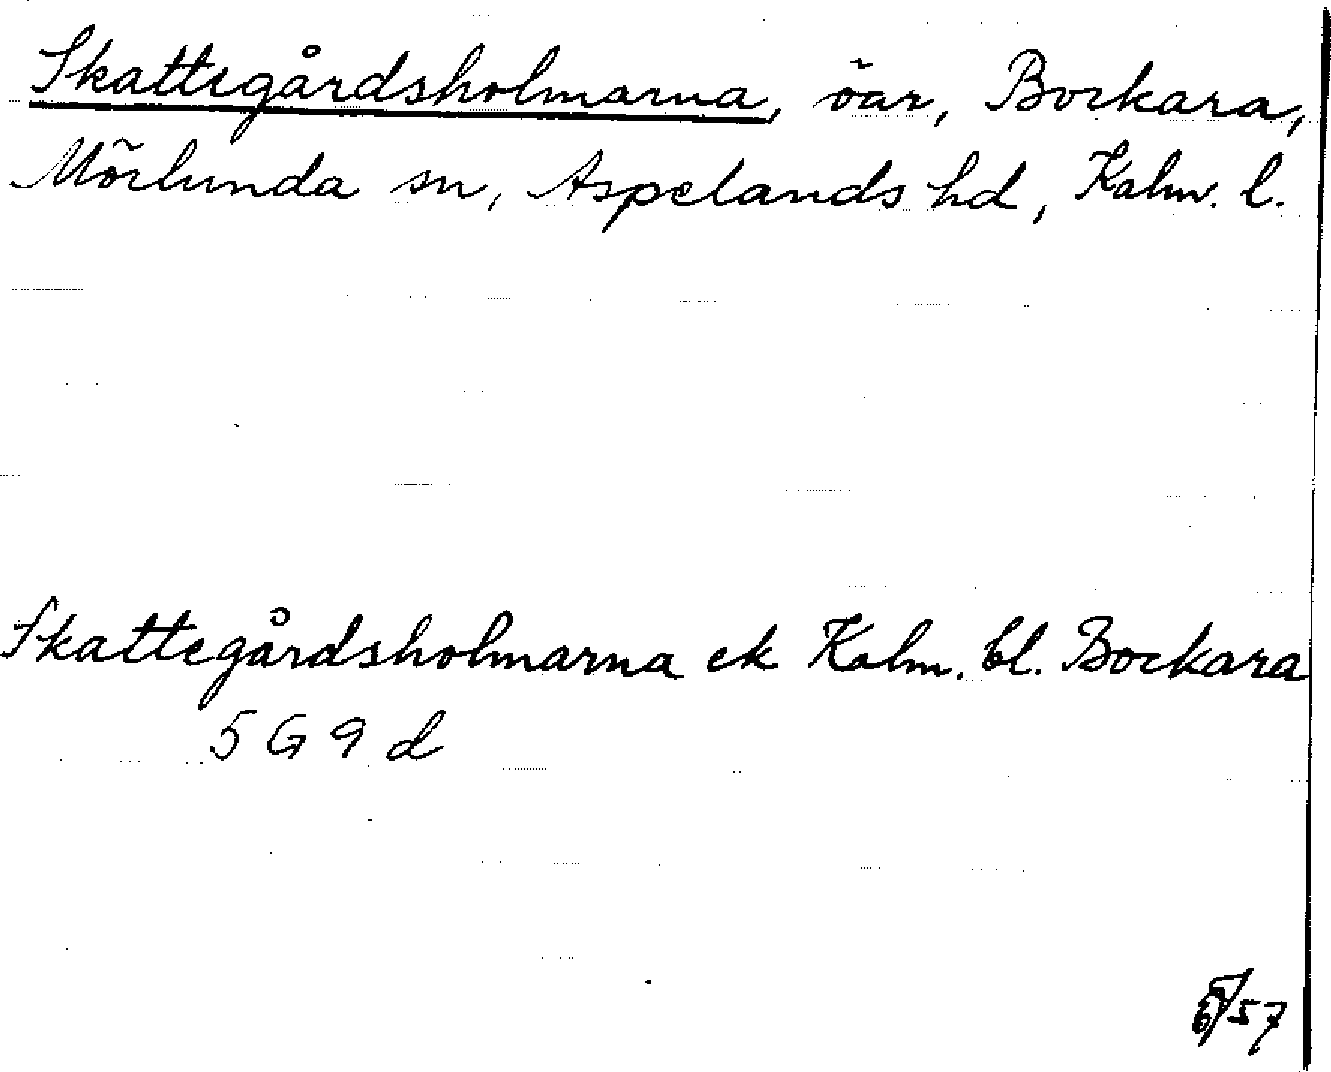 Skattegårdsholmarna, öar, Bockara,
Mörlunda sn, Aspelands hd, Kalm. l.
Skattegårdsholmarna ek Kalm. bl. Bockara
5 G 9 d
57